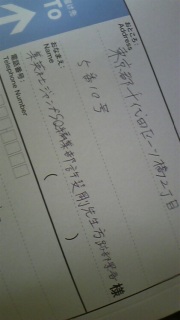 To
おところ
Address
東京都千代田区一ツ橋2丁目
5番10号
おなまえ
Name
集英社ジャンプSQ編集部許斐剛先生方跡部景吾様
(          )
電話番号:
Telephone Number